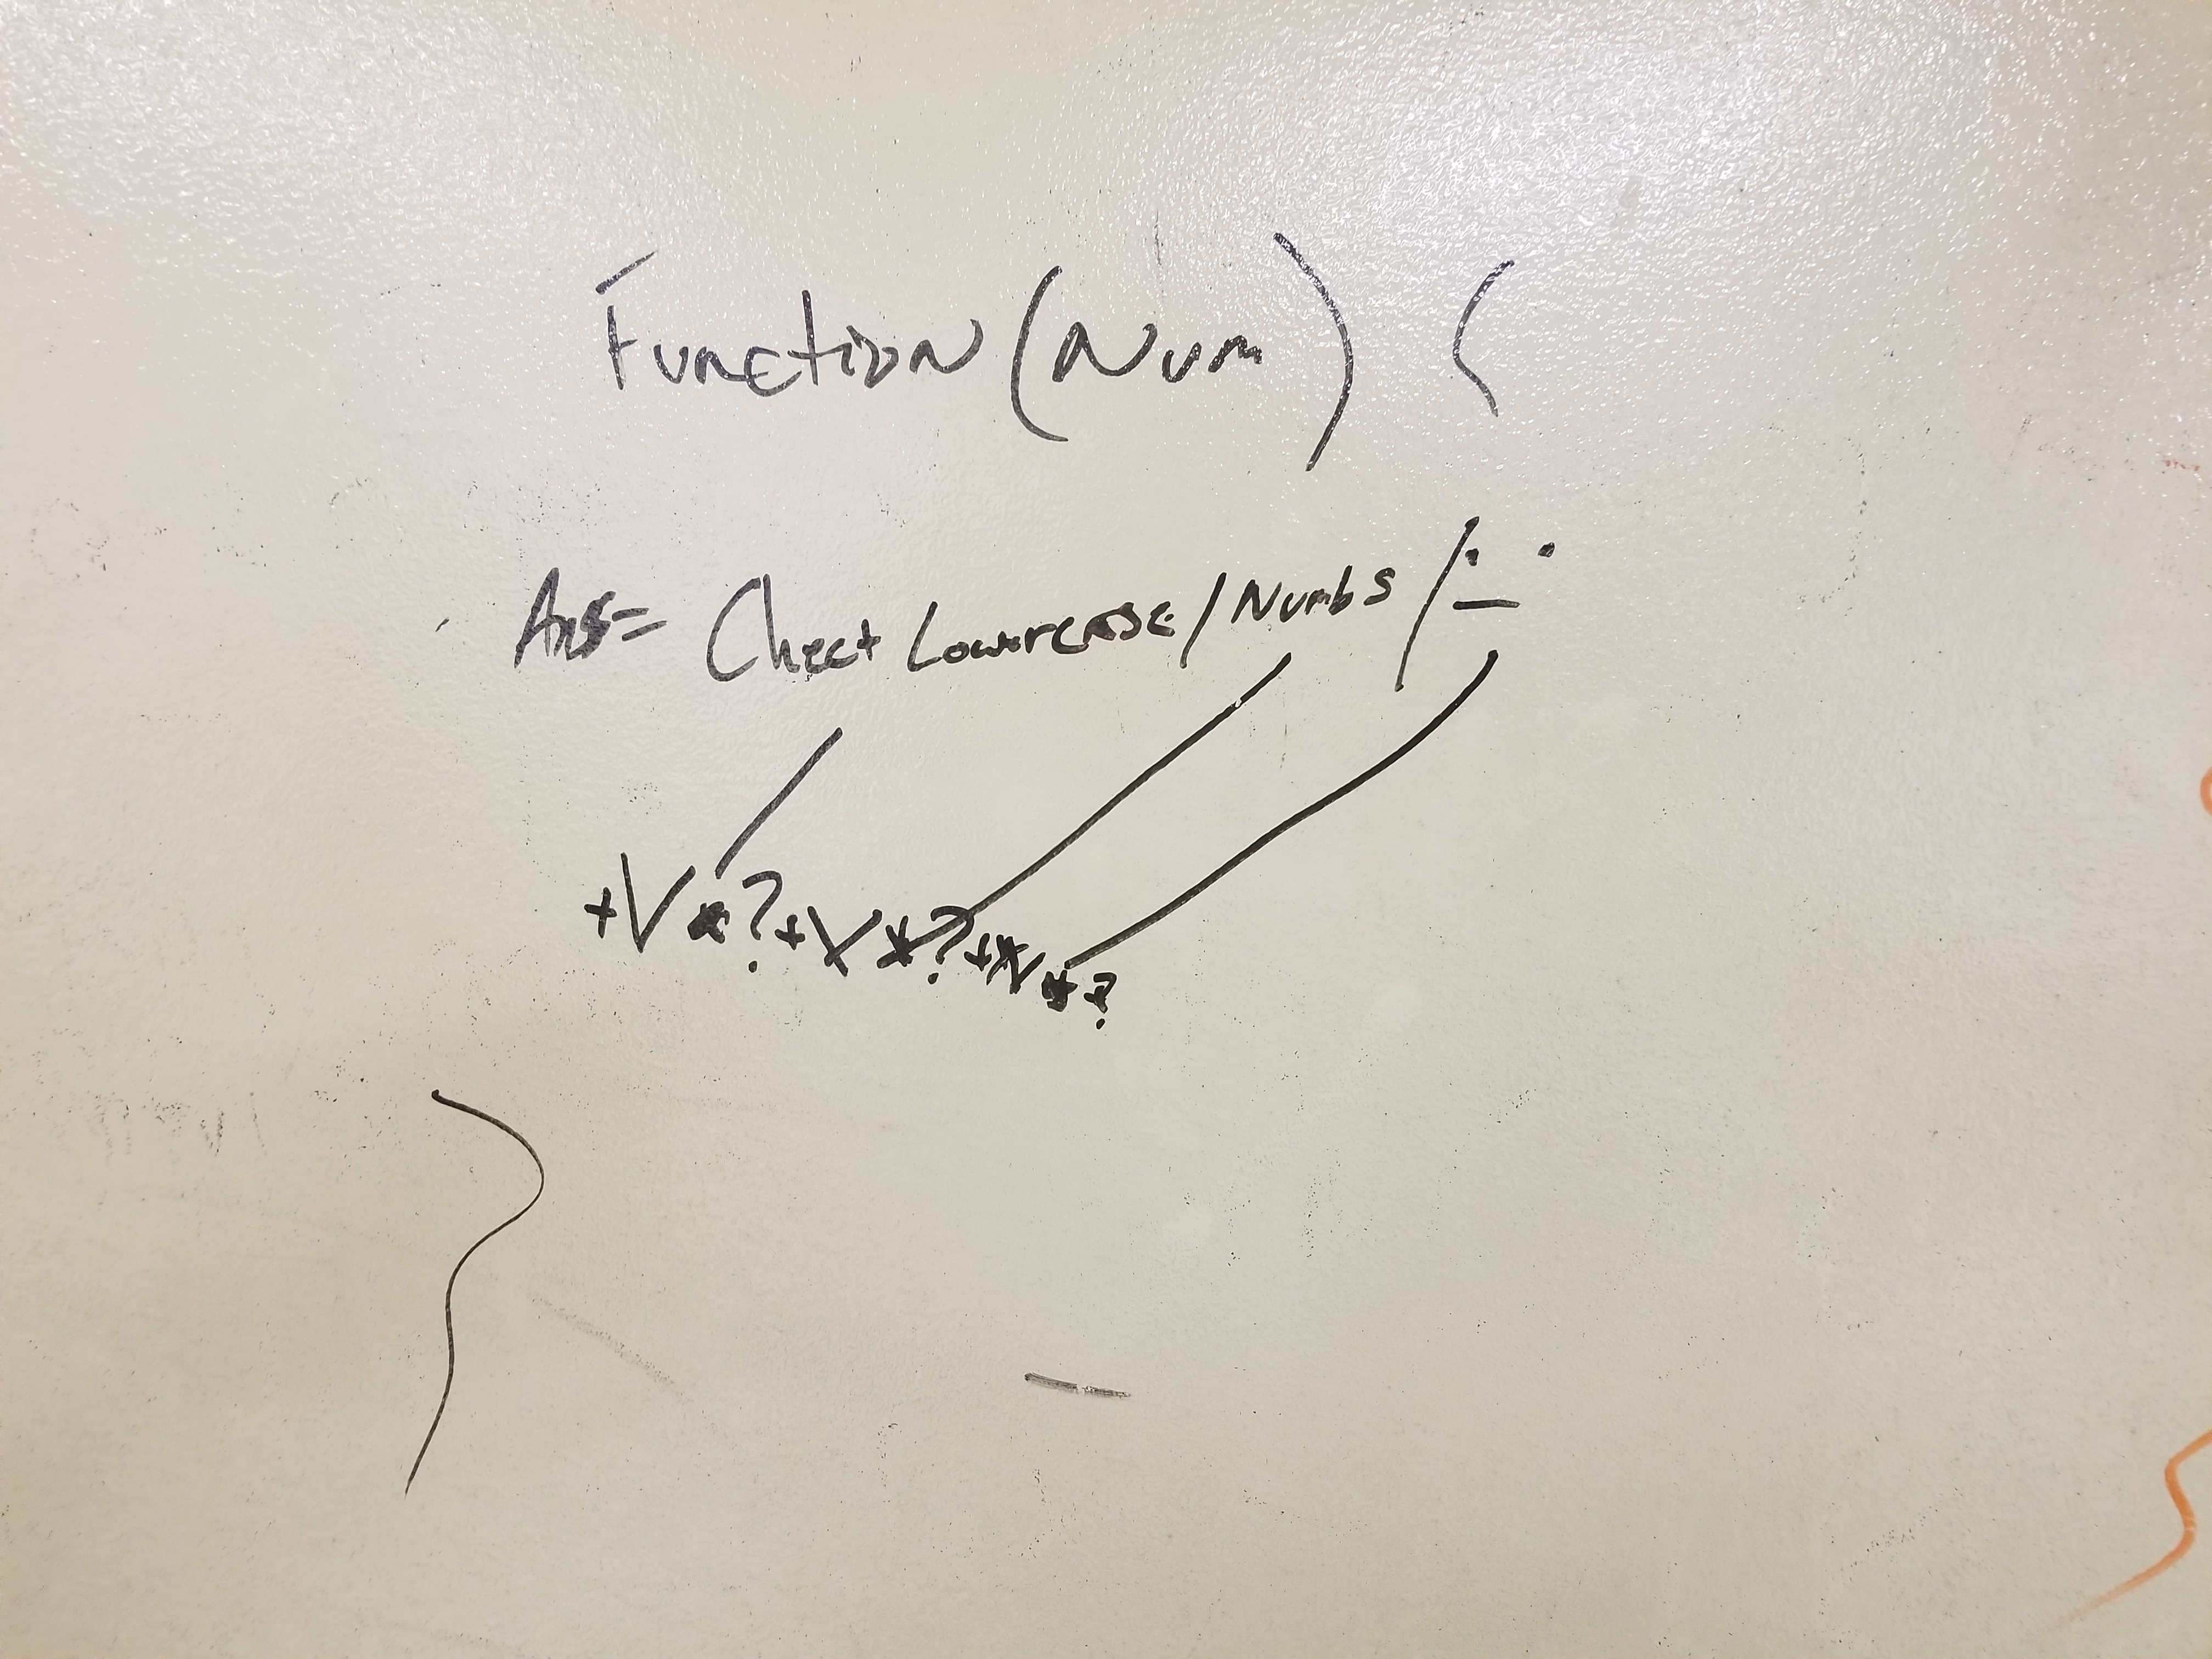 Function (Num) {
Ans= Check Lowercase / Numbs / ∸ ·
+V*?+V*?+*V*?
}